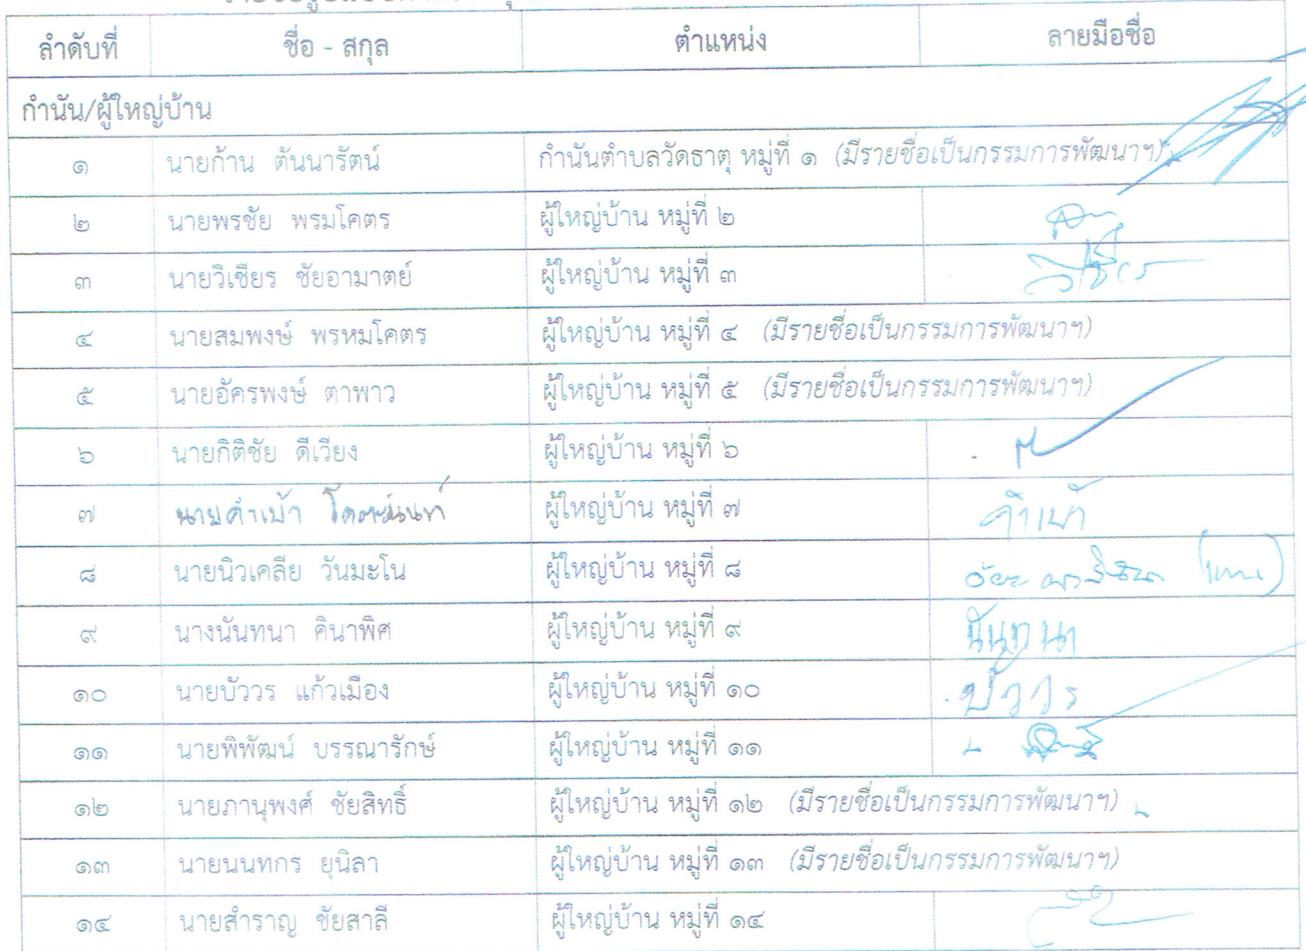 ลำดับที่ ชื่อ - สกุล ตำแหน่ง ลายมือชื่อ
กำนัน/ผู้ใหญ่บ้าน
๑ นายก้าน ตันนารัตน์ กำนันตำบลวัดธาตุ หมู่ที่ ๑ (มีรายชื่อเป็นกรรมการพัฒนาฯ)
๒ นายพรชัย พรมโคตร ผู้ใหญ่บ้าน หมู่ที่ ๒
๓ นายวิเชียร ชัยอามาตย์ ผู้ใหญ่บ้าน หมู่ที่ ๓
๔ นายสมพงษ์ พรหมโคตร ผู้ใหญ่บ้าน หมู่ที่ ๔ (มีรายชื่อเป็นกรรมการพัฒนาฯ)
๕ นายอัครพงษ์ ตาพาว ผู้ใหญ่บ้าน หมู่ที่ ๕ (มีรายชื่อเป็นกรรมการพัฒนาฯ)
๖ นายกิติชัย ดีเวียง ผู้ใหญ่บ้าน หมู่ที่ ๖
๗ นายคำเบ้า ผู้ใหญ่บ้าน หมู่ที่ ๗ คำเบ้า
๘ นายนิวเคลีย วันมะโน ผู้ใหญ่บ้าน หมู่ที่ ๘
๙ นางนันทนา คินาพิศ ผู้ใหญ่บ้าน หมู่ที่ ๙ นันทนา
๑๐ นายบัววร แก้วเมือง ผู้ใหญ่บ้าน หมู่ที่ ๑๐ บัววร
๑๑ นายพิพัฒน์ บรรณารักษ์ ผู้ใหญ่บ้าน หมู่ที่ ๑๑
๑๒ นายภานุพงศ์ ชัยสิทธิ์ ผู้ใหญ่บ้าน หมู่ที่ ๑๒ (มีรายชื่อเป็นกรรมการพัฒนาฯ)
๑๓ นายนนทกร ยุนิลา ผู้ใหญ่บ้าน หมู่ที่ ๑๓ (มีรายชื่อเป็นกรรมการพัฒนาฯ)
๑๔ นายสำราญ ชัยสาลี ผู้ใหญ่บ้าน หมู่ที่ ๑๔